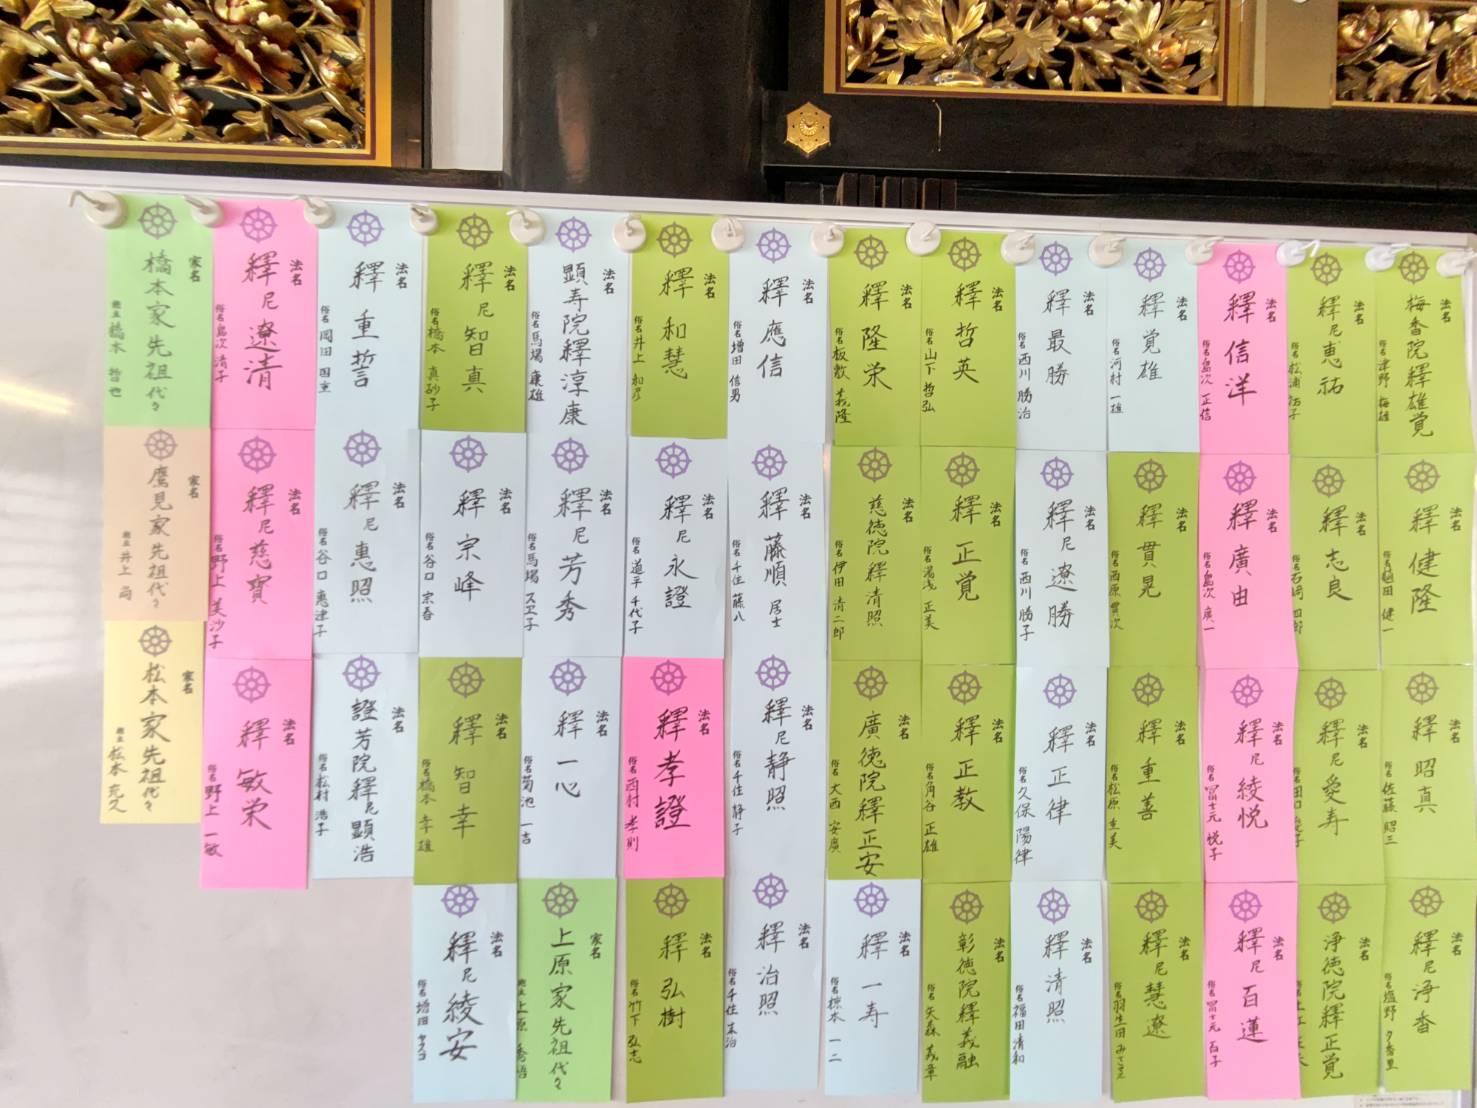 法名
梅香院釋雄覚
俗名 津野 梅雄
法名
釋健隆
俗名 健一
法名
釋昭真
俗名 佐藤 昭三
法名
釋尼浄香
俗名 塩野 夕香里
法名
釋尼恵祐
俗名 松浦
法名
釋志良
俗名 石崎 四郎
法名
釋尼愛寿
俗名 田口
法名
浄徳院釋正覚
法名
釋信洋
俗名 島次 正信
法名
釋廣由
俗名 島次 廣一
法名
釋尼綾悦
俗名 冨士元 悦子
法名
釋尼百蓮
俗名 冨士元 百子
法名
釋覚雄
俗名 河村 一雄
法名
釋貫晃
俗名 西原 貫次
法名
釋重善
俗名 松原 重美
法名
釋尼慧遼
俗名 羽生田
法名
釋最勝
俗名 西川 勝治
法名
釋尼遼勝
俗名 西川 勝子
法名
釋正律
俗名 久保 陽律
法名
釋清照
俗名 福田 清和
法名
釋哲英
俗名 山下 哲弘
法名
釋正覚
俗名 湯浅 正美
法名
釋正教
俗名 角谷 正雄
法名
彰徳院釋義融
俗名 矢森 義章
法名
釋隆栄
俗名 板敷 義隆
法名
慈徳院釋清照
俗名 伊田 清二郎
法名
廣徳院釋正安
俗名 大西 安廣
法名
釋一寿
俗名 椋本 一二
法名
釋應信
俗名 増田 信男
法名
釋藤順居士
俗名 千住 藤八
法名
釋尼静照
俗名 千住 静子
法名
釋治照
俗名 千住
法名
釋和慧
俗名 井上 和彦
法名
釋尼永證
俗名 道平 千代子
法名
釋孝證
俗名 西村 孝則
法名
釋弘樹
俗名 竹下 弘志
法名
顕寿院釋淳康
俗名 馬場 康雄
法名
釋尼芳秀
俗名 馬場 スヱ子
法名
釋一心
俗名 菊池 一吉
家名
上原家先祖代々
施主 上原
法名
釋尼智真
俗名 橋本 真砂子
法名
釋宗峰
俗名 谷口 宗春
法名
釋智幸
俗名 橋本 幸雄
法名
釋尼綾安
俗名 増田 ヤスヨ
法名
釋重誓
俗名 岡田 国重
法名
釋尼惠照
俗名 谷口 惠津子
法名
證芳院釋尼顕浩
俗名 松村 浩子
法名
釋尼遼清
俗名 島次 清子
法名
釋尼慈寳
俗名 野上 美沙子
法名
釋敏栄
俗名 野上 一敏
家名
橋本家先祖代々
施主 橋本 哲也
家名
鷹見家先祖代々
施主 井上
家名
松本家先祖代々
施主 松本 充久